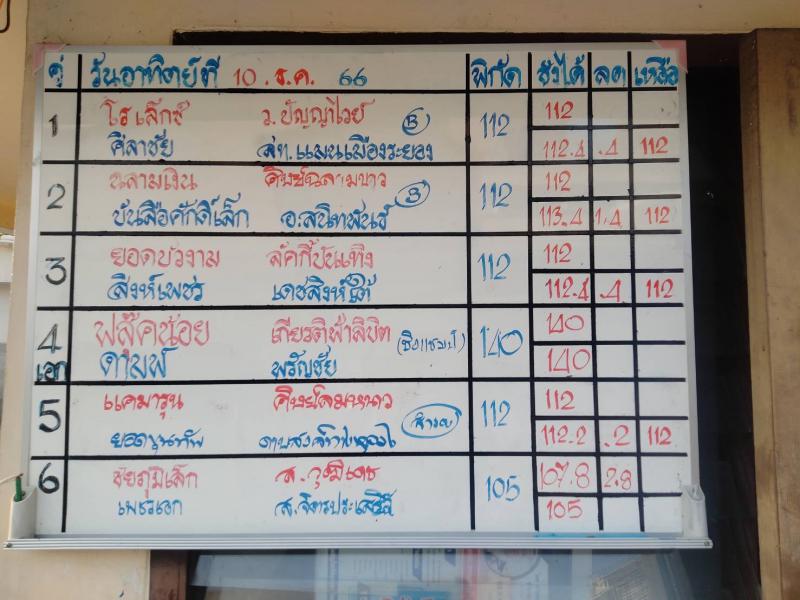 คู่ วันอาทิตย์ที่ 10 . ธ.ค. 66 พิกัด ชั่งได้ ลด เหลือ
1 โรเล็กซ์ ว.ปัญญาไวย์ (B) 112 112
ศิลาชัย ส.ท.แมนเมืองระยอง 112.4 .4 112
2 ฉลามเงิน ศิษย์ฉลามขาว (B) 112 112
บันลือศักดิ์เล็ก อ.สนิทพันธ์ 113.4 1.4 112
3 ยอดบัวงาม ลัคกี้บันเทิง 112 112
สิงห์เพชร เดชสิงห์ใต้ 112.4 .4 112
4 พลัคน้อย เกียรติฟ้าลิขิต (ชิงแชมป์) 140 140
เอก ดามพ์ พรัญชัย 140
5 แคมารุน ศิษย์ลมหนาว (สำรอง) 112 112
ยอดขุนทัพ 112.2 .2 112
6 ชัยภูมิเล็ก ส.วุฒิเดช 105 107.8 2.8
เพชรเอก ส.จิตรประเสริฐ 105